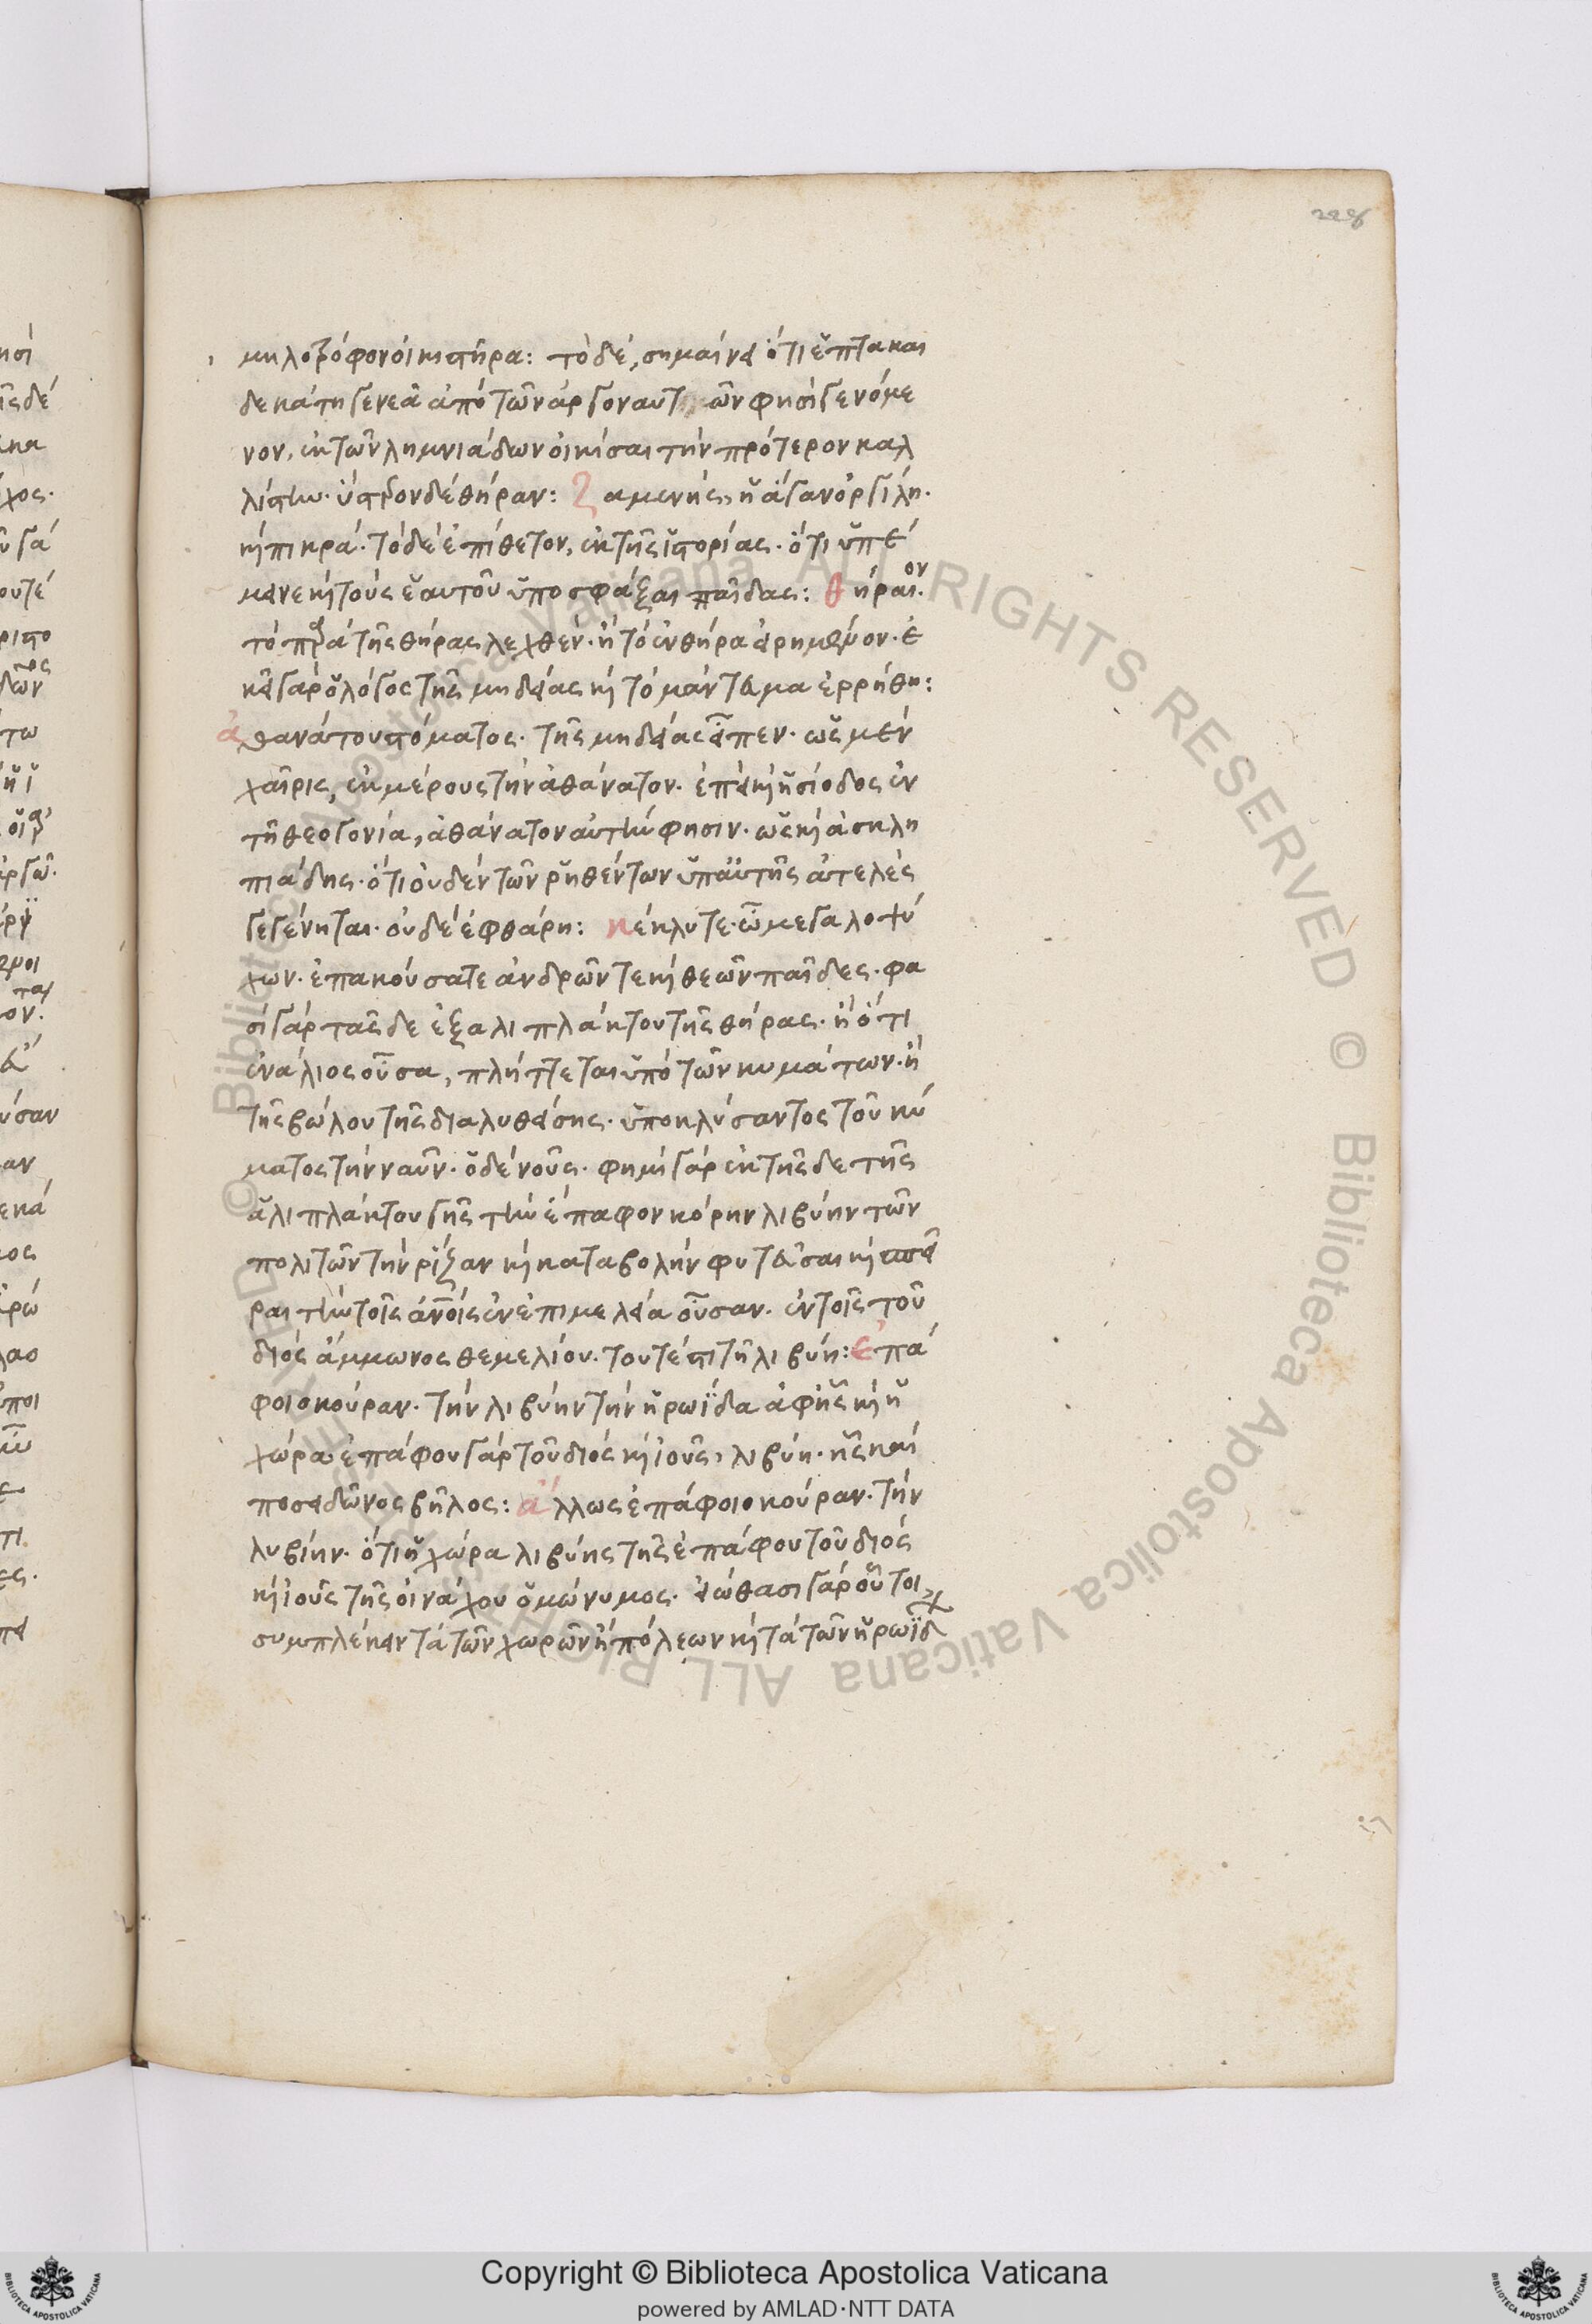 μηλοτρόφον οἰκιστῆρα: τὸ δέ, σημαίνει ὅτι ἑπτὰ και
δεκάτη γενεᾶ ἀπὸ τῶν ἀργοναυτ ῶν φησὶ γενόμε
νον, ἐκ τῶν λημνιάδων οἰκίσαι τὴν πρότερον καλ
λίστην. ὕστερον δὲ θήραν: ζαμενής, ἡ ἄγαν ὀργίλη.
κὴ πικρά. τὸ δὲ ἐπίθετον, ἐκ τῆς ἱστορίας. ὅτι ὑπέ
μεινε κὴ τοὺς ἑαυτοῦ ὑποσφάξαι παῖδας: θήραιον.
τὸ πρὰ τῆς θήρας λεχθέν. ἢ τὸ ἐν θήρα εἰρημένον. ἐ
κεῖ γὰρ ὁ λόγος τῆς μηδείας κὴ τὸ μάντευμα ἐρρήθη:
ἀθανάτου στόματος. τῆς μηδείας εἶπεν. ὡς μὲν
χαῖρις, ἐκ μέρους τὴν ἀθάνατον. ἐπεὶ κὴ ἡσίοδος ἐν
τῆ θεογονία, ἀθάνατον αὐτήν φησιν. ὡς κὴ ἀσκλη
πιάδης. ὅτι οὐδὲν τῶν ῥηθέντων ὑπ' αὐτῆς ἀτελὲς
γεγένηται. οὐδὲ ἐφθάρη: κέκλυτε. ὦ μεγαλοψύ
χων. ἐπακούσατε ἀνδρῶν τε κὴ θεῶν παῖδες. φα
σὶ γὰρ τᾶς δε ἐξ ἁλιπλάκτου τῆς θήρας. ἢ ὅτι
ἐνάλιος οὖσα, πλήττεται ὑπὸ τῶν κυμάτων. ἢ
τῆς βώλου τῆς διαλυθείσης. ὑποκλύσαντος τοῦ κύ
ματος τὴν ναῦν. ὁ δὲ νοῦς. φημὶ γὰρ ἐκ τῆς δε τῆς
ἁλιπλάκτου γῆς τὴν ἐπάφον κόρην λιβύην τῶν
πολιτῶν τὴν ῥίζαν κὴ καταβολὴν φυτεῦσαι κὴ σπεῖ
ραι τὴν τοῖς ἀνοις ἐν ἐπιμελεία οὖσαν. ἐν τοῖς τοῦ
διὸς ἄμμωνος θεμελίον. τουτέστι τῆ λιβύη: ἐπά
φοιο κούραν. τὴν λιβύην τὴν ἡρωΐδα ἀφ' ἧς κὴ ἡ
χώρα ἐπάφου γὰρ τοῦ διὸς κὴ ἰοῦς, λιβύη. ἧς καὶ
ποσειδῶνος βῆλος: ἄλλως ἐπάφοιο κούραν. τὴν
λυβίην. ὅτι ἡ χώρα λιβύης τῆς ἐπάφου τοῦ διὸς
κὴ ἰοῦς τῆς οἰνάχου ὁμώνυμος. εἰώθασι γὰρ οὗτοι
συμπλέκειν τὰ τῶν χωρῶν ἢ πόλεων κὴ τὰ τῶν ἡρωΐδ